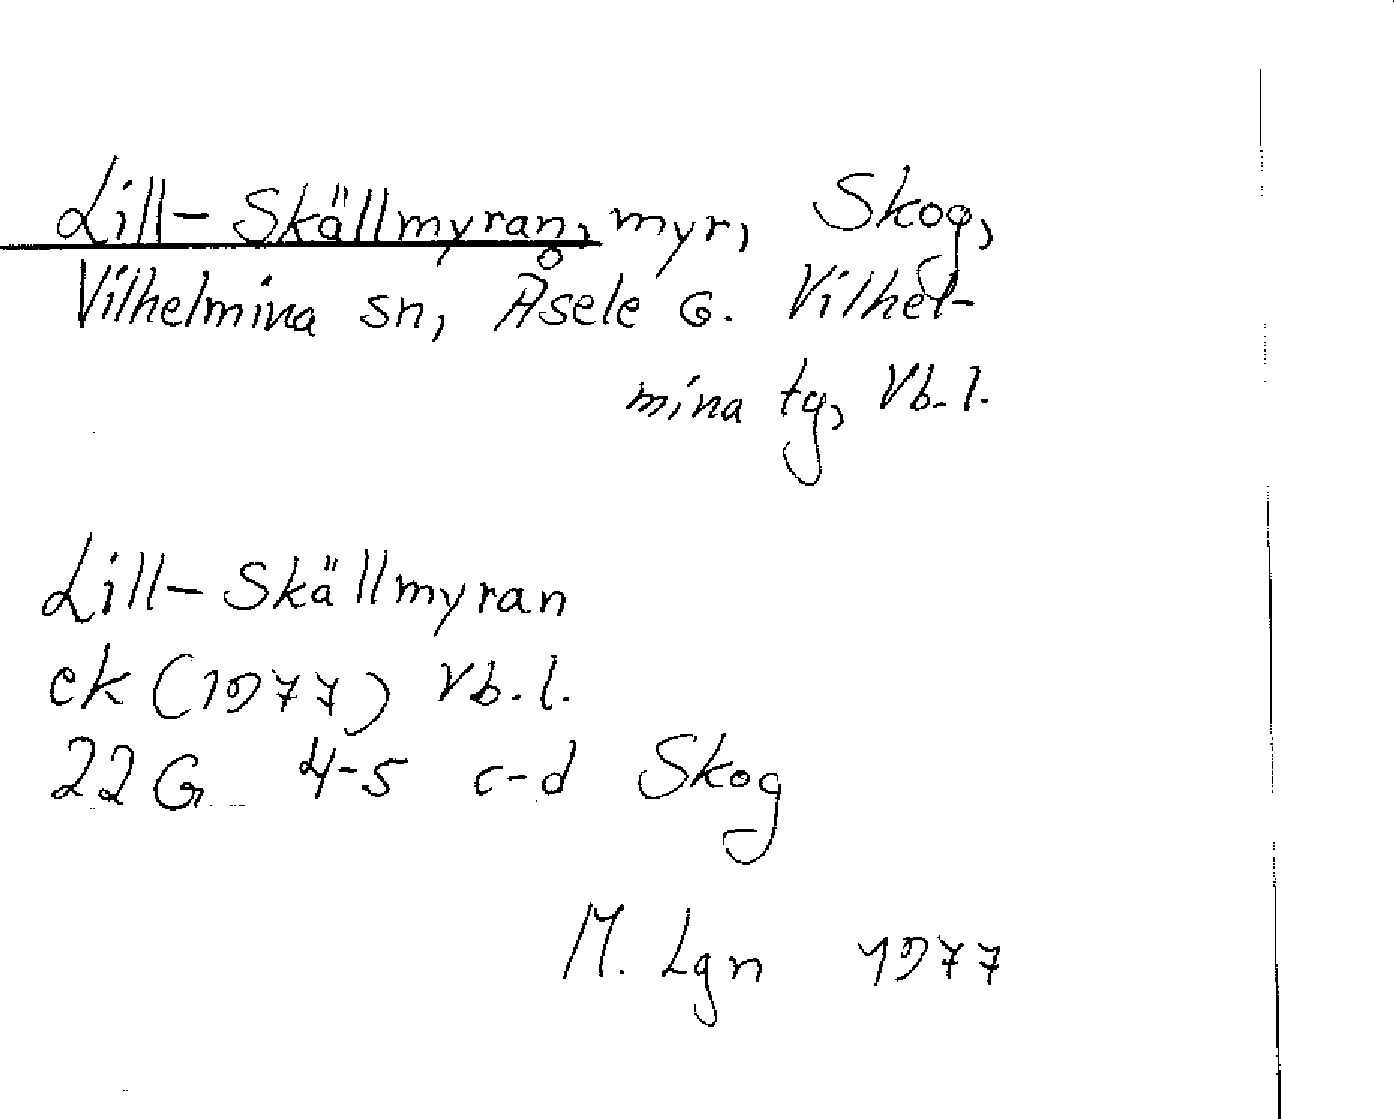 Lill-Skällmyran, myr, Skog,
Vilhelmina sn, Åsele G. Vilhel-
mina tg, Vb. l.
Lill-Skällmyran
ek (1977) Vb. l.
22 G 4-5 c-d Skog
M. Lgn 1977